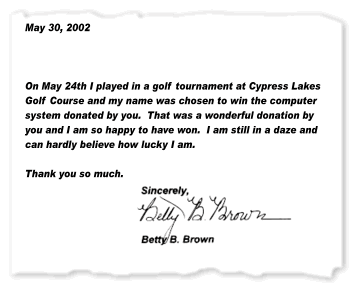 May 30, 2002
On May 24th I played in a golf tournament at Cypress Lakes
Golf Course and my name was chosen to win the computer
system donated by you.  That was a wonderful donation by
you and I am so happy to have won.  I am still in a daze and
can hardly believe how lucky I am.
Thank you so much.
Sincerely,
Betty B Brown
Betty B. Brown